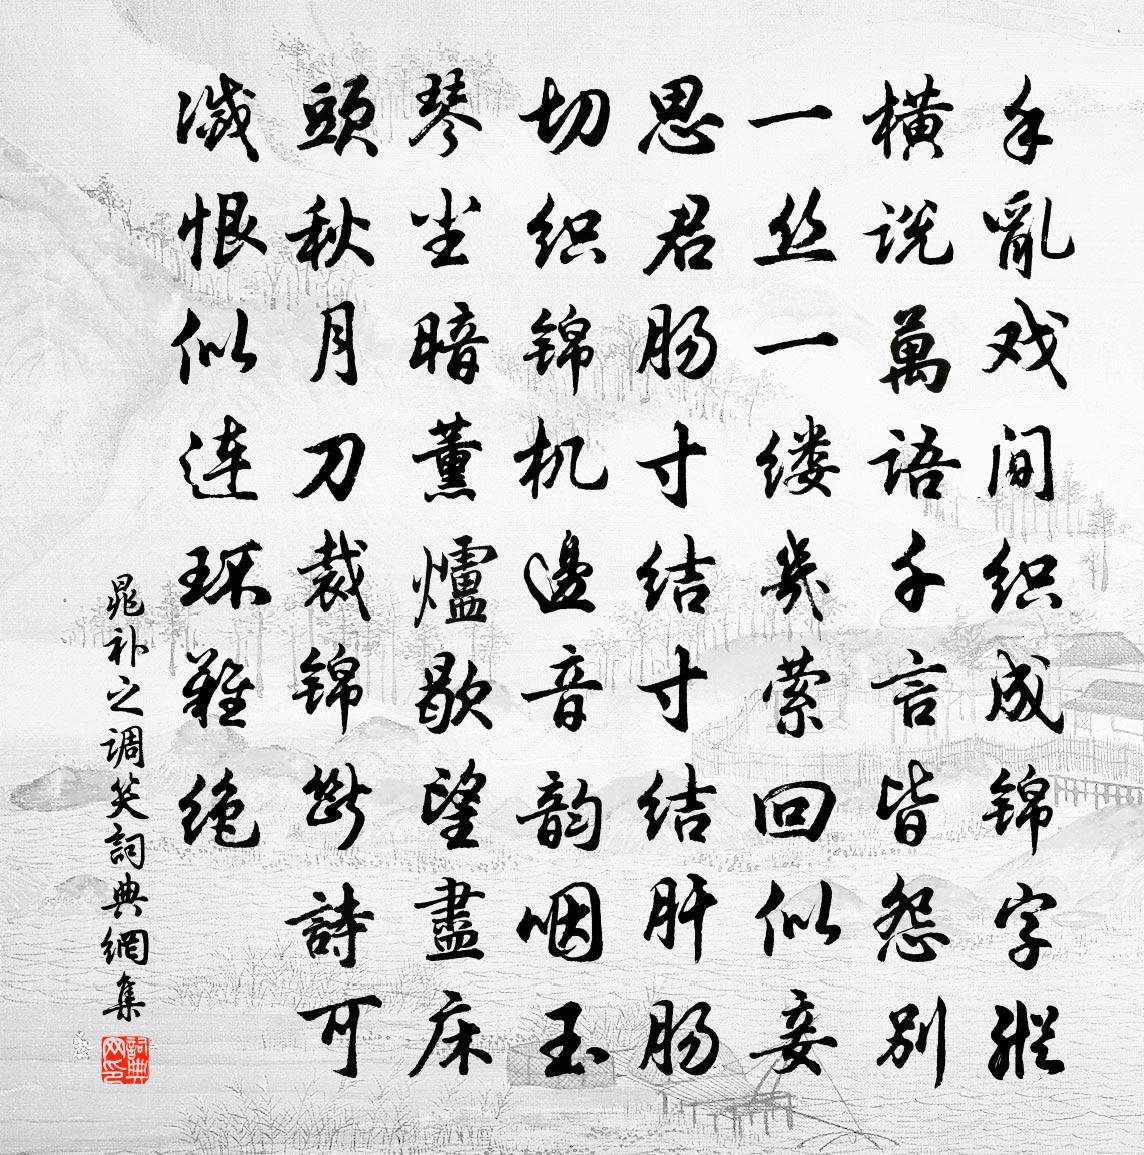 手亂戏间织成锦字縱
横说萬语千言皆怨别
一丝一缕幾萦回似妾
思君肠寸结寸结肝肠
切织锦机邊音韵咽玉
琴尘暗薰爐歇望盡床
頭秋月刀裁锦断詩可
滅恨似连环難绝
晁补之调笑詞典網集
詞典网印